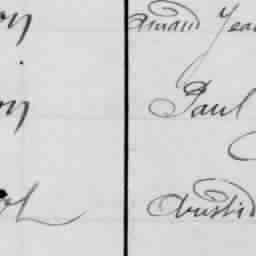 on Amand Jea
on Paul
ol Aristid